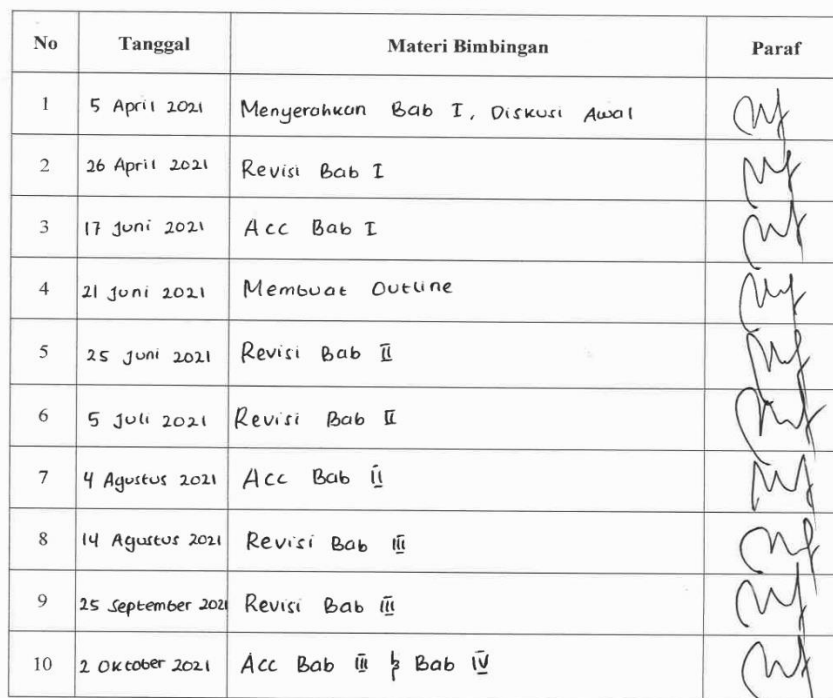 No Tanggal Materi Bimbingan Paraf
1 5 April 2021 Menyerahkan Bab I, Diskusi Awal
2 26 April 2021 Revisi Bab I
3 17 Juni 2021 Acc Bab I
4 21 Juni 2021 Membuat Outline
5 25 Juni 2021 Revisi Bab II
6 5 Juli 2021 Revisi Bab II
7 4 Agustus 2021 Acc Bab II
8 14 Agustus 2021 Revisi Bab III
9 25 September 2021 Revisi Bab III
10 2 Oktober 2021 Acc Bab III & Bab IV